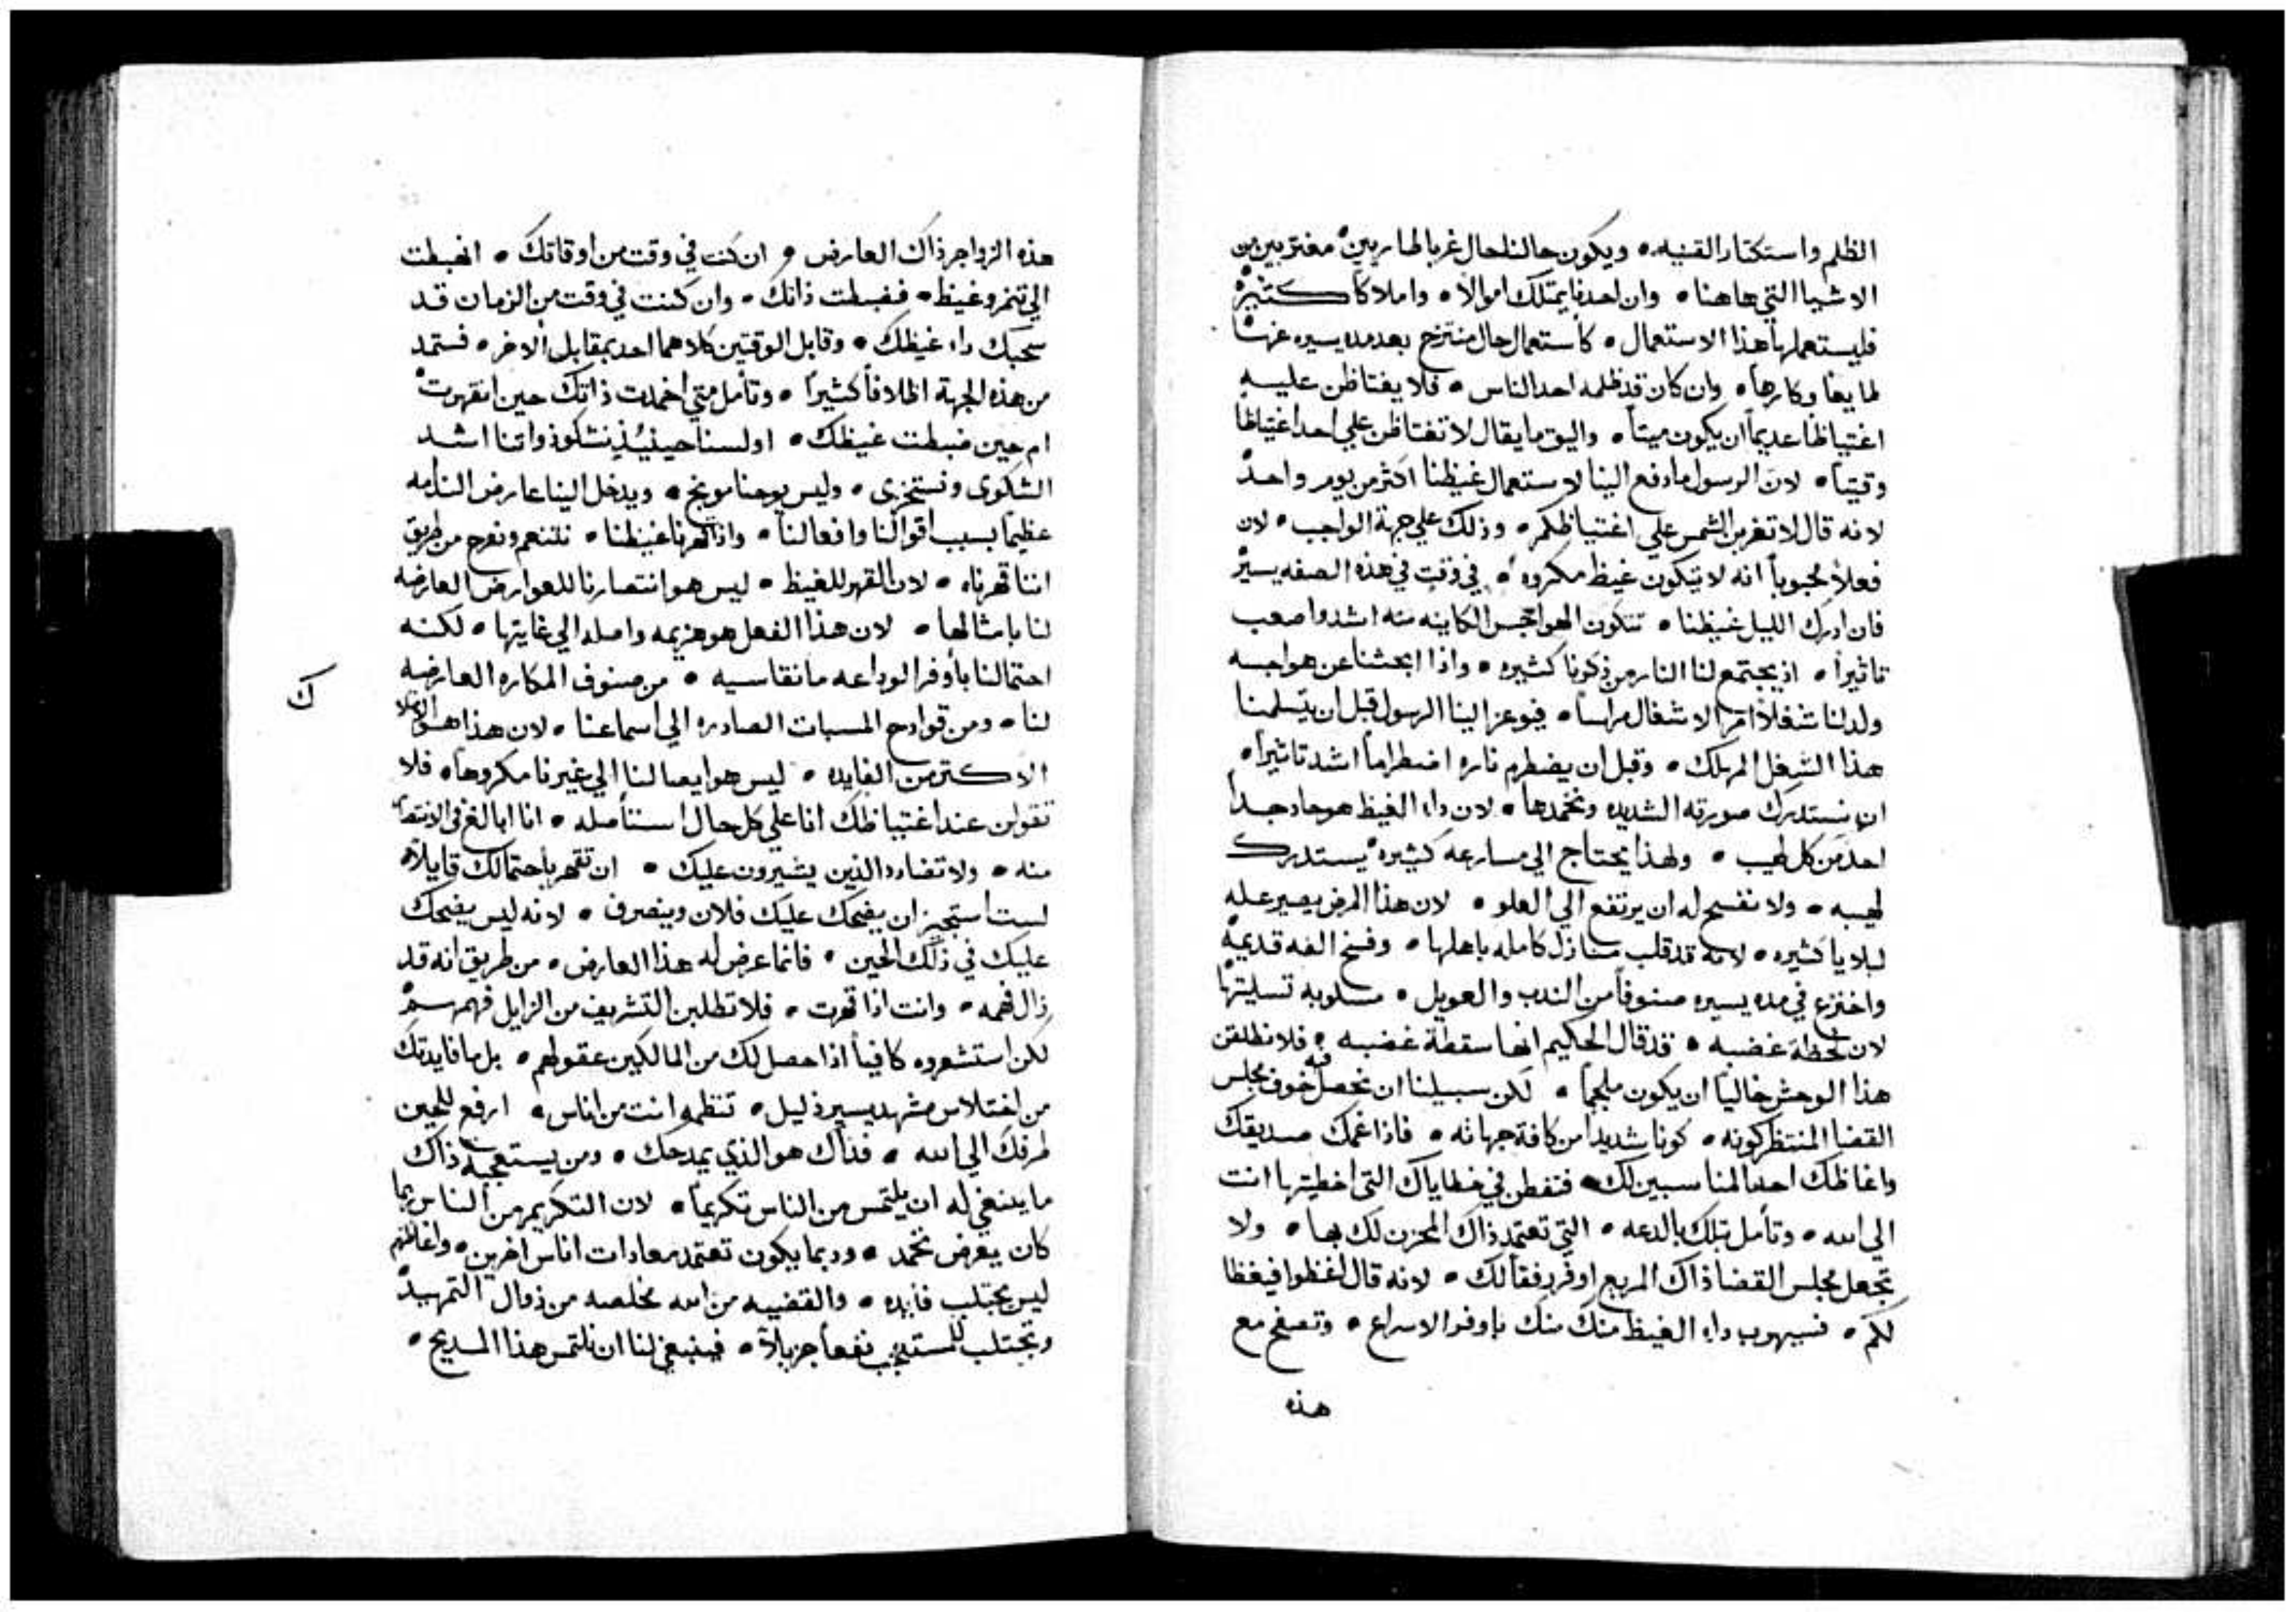 الظلم واستكتار القنيه • ويكون حالنا حال غربا طاريين • مغتربين من
الاشيا التي هاهنا • وان احدنا يمتلك اموالاً • واملاكاً كثيرة
فليستعملها هذا الاستعمال • كاستعمال حال منتزح بعد مده يسيره عنها
لما يغا وكارهاً • وان كان قد ظلمه احد الناس • فلا يغتاظن عليه
اغتياظاً عديماً ان يكون ميتاً • واليق ما يقال لا تغتاظن علي احد اغتياظاً
وقتياً • لان الرسول ما دفع الينا لاستعمال غيظنا اكثر من يوم واحد
لانه قال لا تغربن الشمس علي اغتياظكم • وذلك علي جهة الواجب • لان
فعلاً محبوباً انه لا يتكون غيظ مكروه • في وقت في هذه الصفه يسير
فان ادرك الليل غيظنا • تتكون الهواجس الكاينه منه اشد واصعب
تاثيراً • اذ يجتمع لنا النار من ذكونا كثيره • واذا ابحثنا عن هواجسه
ولد لنا شغلاً امر الاشغال مراساً • فيوعز الينا الرسول قبل ان يتسلمنا
هذا الشغل المهلك • وقبل ان يضطرم ناره اضطراماً اشد تاثيراً •
ان نستدرك صورته الشديده ونخمدها • لان داء الغيظ هو حاد جداً
احد من كل لهيب • ولهذا يحتاج الي مسارعه كثيره يستدرك
لهيبه • ولا نفسح له ان يرتفع الي العلو • لان هذا المرض يصير عله
لبلايا كثيره • لانه قد قلب منازل كامله باهلها • وفسخ الفه قديمة
واخترع في مده يسيره صنوفاً من الندب والعويل • مسلوبه تسليتها
لان لحظة غضبه • قد قال الحكيم انها سقطة غضبه • فلا نطلقن
هذا الوحش خالياً ان يكون ملجماً • لكن سبيلنا ان نحصل فيه خوف مجلس
القضا المنتظر كونه • كونا شديداً من كافة جهاته • فاذا غمك صديقك
واغاظك احد المناسبين لك • فتفطن في خطاياك التي اخطيتها انت
الي الله • وتأمل بتلك بالدعه • التي تعتمد ذاك المحزن لك بها • ولا
تجعل مجلس القضا ذاك المريع اوفر رفقاً لك • لانه قال اغظوا فيغظا
لكم • فسيهرب داء الغيظ منك منك باوفر الاسراع • وتصفح مع
هذه
هذه الزواجر ذاك العارض • ان كنت في وقت من اوقاتك • انضبطت
الي تنمر وغيظ • فضبطت ذاتك • وان كنت في وقت من الزمان قد
سحبك داء غيظك • وقابل الوقتين كلاهما احد بمقابل الاخر • فستمد
من هذه الجهة اظلافاً كثيراً • وتأمل متي اخمدت ذاتك حين انقهرت
ام حين ضبطت غيظك • اولسنا حينيذ نشكو ذواتنا اشد
الشكوى ونستخزي • وليس يوجنا موبخ • ويدخل الينا عارض الندامه
عظيماً بسبب اقوالنا وافعالنا • واذا قهرنا غيظنا • نتنعم ونفرح من طريق
اننا قهرناه • لان القهر للغيظ • ليس هو انتصارنا للعوارض العارضه
لنا بامثالها • لان هذا الفعل هو هزيمه واصله الي غايتها • لكنه
احتمالنا بأوفر الوداعه ما نقاسيه • من صنوف المكاره العارضه
لنا • ومن قوادح المسبات الصادره الي اسماعنا • لان هذا هو
الاكثر من الفايده • ليس هو ايصالنا الي غيرنا مكروهاً • فلا
تقولن عند اغتياظك انا علي كل حال استأصله • انا ابالغ في الانتصار
منه • ولا تضادد الذين يشيرون عليك • ان تقهر باحتمالك قايلاً
لست استجيز ان يضحك عليك فلان وينصرف • لانه ليس يضحك
عليك في ذلك الحين • فانما عرض له هذا العارض • من طريق انه قد
زال فهمه • وانت اذا قهرت • فلا تطلبن التشريف من الزايل فهمهم
لكن استشعروه كافياً اذا حصل لك من المالكين عقولهم • بل ما فايدتك
من اختلاس مشهد يسير ذليل • تنظمه انت من اناس • ارفع للحين
طرفك الي الله • فذاك هو الذي يمدحك • ومن يستعجبه ذاك
ما ينبغي له ان يلتمس من الناس تكريماً • لان التكريم من الناس بما
كان يعرض نخمد • وربما يكون تعتمد معادات اناس اخرين • واغاظتهم
ليس يجتلب فايده • والقضيه من الله مخلصه من زوال التمهيد
وتجتلب للمستدجب نفعاً جزيلاً • فينبغي لنا ان نلتمس هذا المديح •
ك